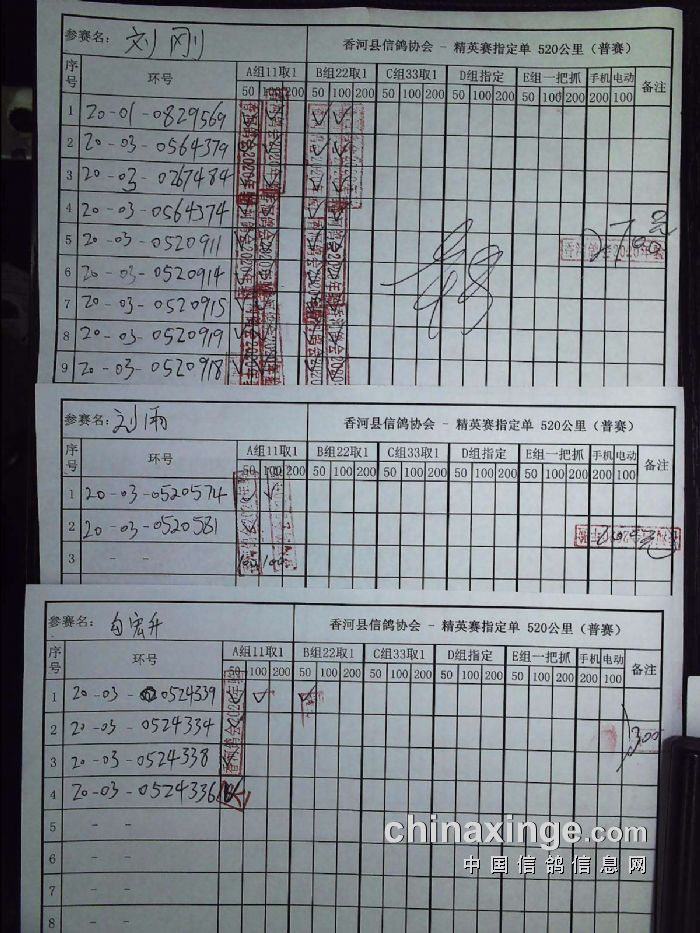 参赛名: 刘刚 香河县信鸽协会 - 精英赛指定单 520公里（普赛）
序号 环号 A组11取1 B组22取1 C组33取1 D组指定 E组一把抓 手机 电动 备注
50 100 200 50 100 200 50 100 200 50 100 200 50 100 200 200 100
1 20-01-0829569
2 20-03-0564379
3 20-03-0267484
4 20-03-0564374
5 20-03-0520911
6 20-03-0520914
7 20-03-0520915
8 20-03-0520919
9 20-03-0520918
参赛名: 刘雨 香河县信鸽协会 - 精英赛指定单 520公里（普赛）
序号 环号 A组11取1 B组22取1 C组33取1 D组指定 E组一把抓 手机 电动 备注
50 100 200 50 100 200 50 100 200 50 100 200 50 100 200 200 100
1 20-03-0520574
2 20-03-0520581
3 - - 100 100
参赛名: 宏升 香河县信鸽协会 - 精英赛指定单 520公里（普赛）
序号 环号 A组11取1 B组22取1 C组33取1 D组指定 E组一把抓 手机 电动 备注
50 100 200 50 100 200 50 100 200 50 100 200 50 100 200 200 100
1 20-03-0524339
2 20-03-0524334 300
3 20-03-0524338
4 20-03-0524336
5 - -
6 - -
7 - -
8 - -
chinaxinge.com
中国信鸽信息网